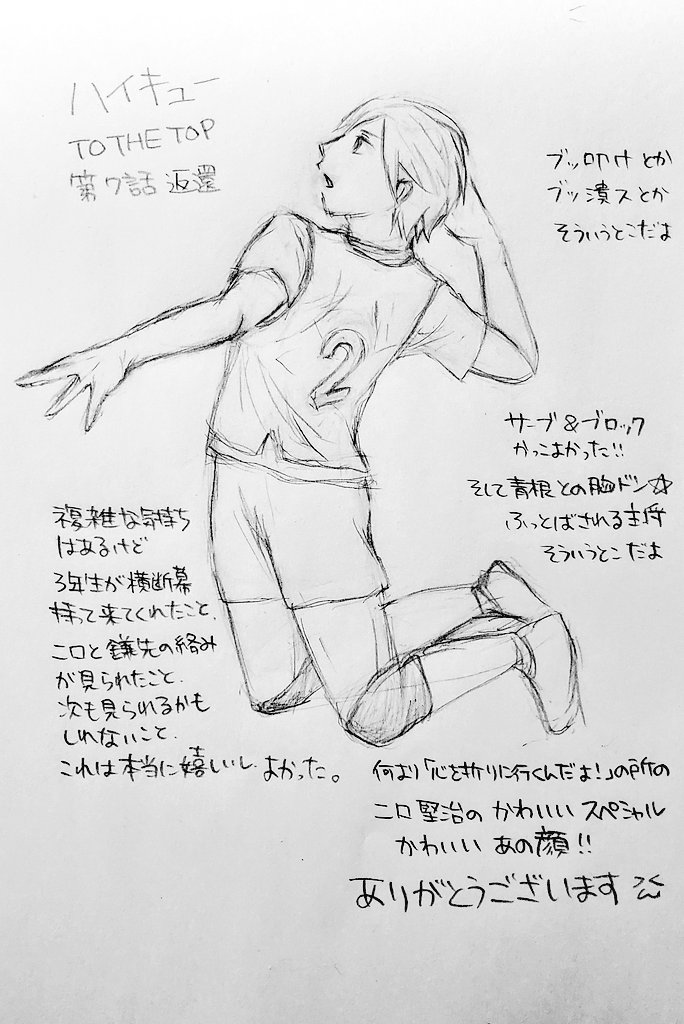 ハイキュー
TO THE TOP
第7話 返還
ブッ叩けとか
ブッ潰スとか
そういうとこだよ
サーブ&ブロック
かっこよかった!!
そして青根との胸ドン☆
ふっとばされる主将
そういうとこだよ
複雑な気持ち
はあるけど
3年生が横断幕
持って来てくれたこと、
二口と鎌先の絡み
が見られたこと、
次も見られるかも
しれないこと、
これは本当に嬉しいし、よかった。
何より「心を折りに行くんだよ!」の所の
二口堅治の かわいい スペシャル
かわいい あの顔!!
ありがとうございます
2